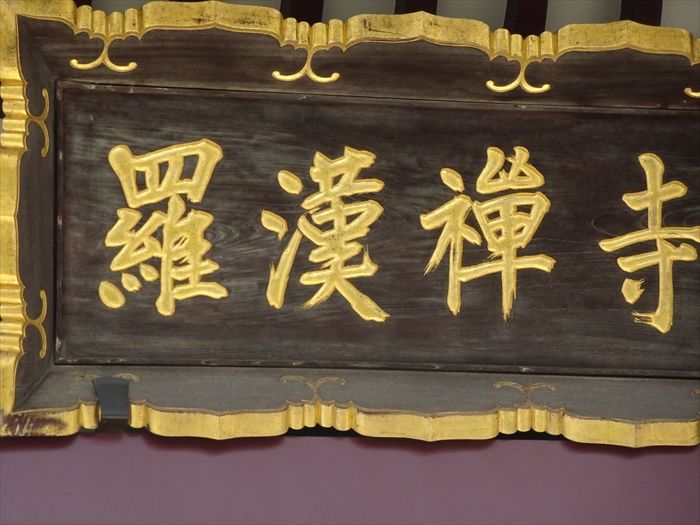 羅漢禪寺